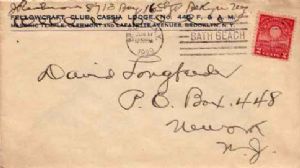 8713 Bay 16 St
FELLOWCRAFT CLUB, CASSIA LODGE, NO. 445, F. & A. M.
MASONIC TEMPLE, CLERMONT AND LAFAYETTE AVENUES, BROOKLYN, N. Y.
BATH BEACH
David Longfeder
P.O. Box. 448
New York
N.J.